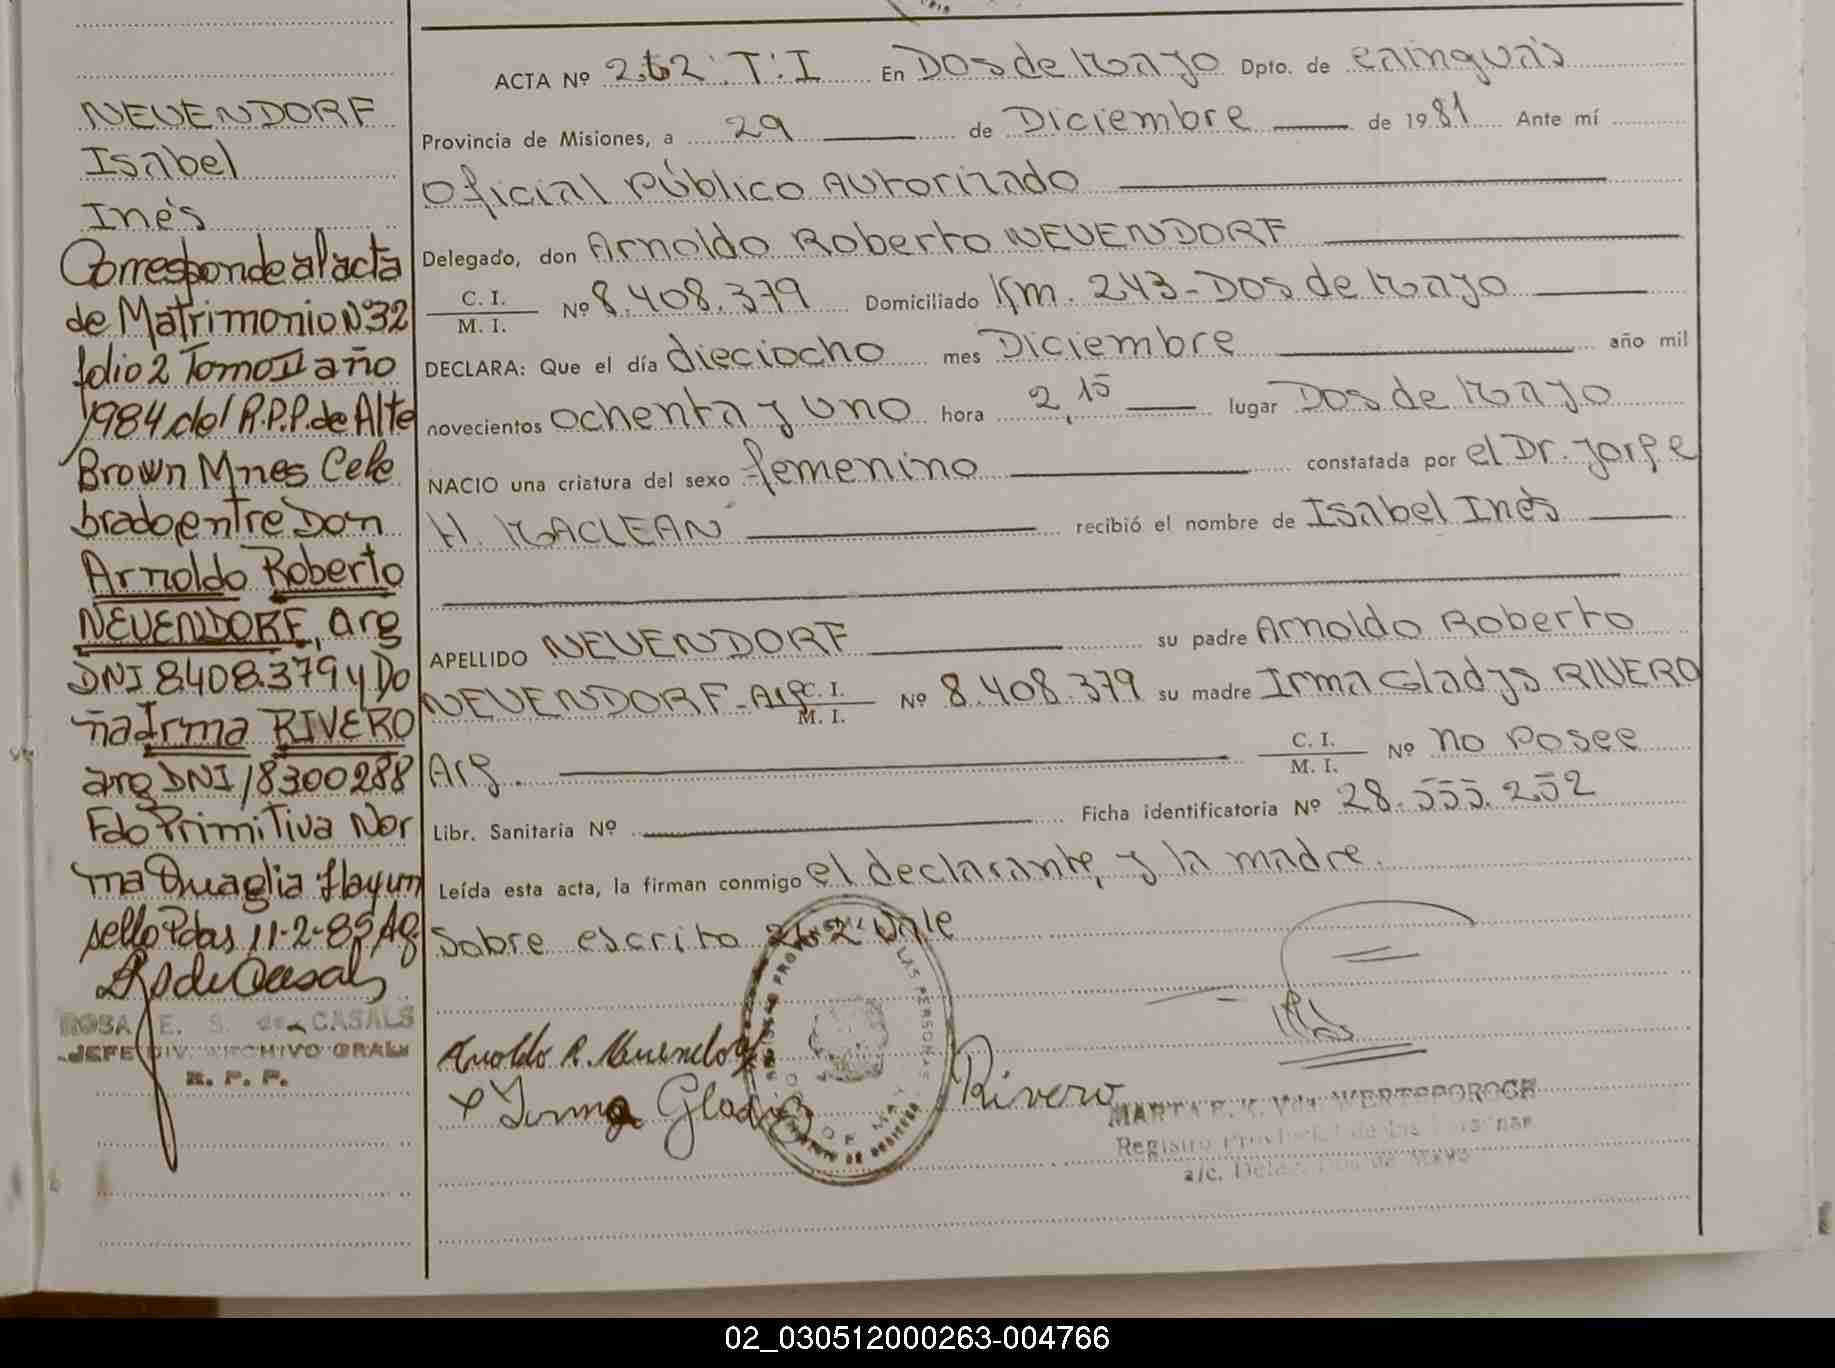 NEUENDORF
Isabel
Inés
Corresponde al acta
de Matrimonio Nº32
folio 2 Tomo II año
1984 del R.P.P. de Alte
Brown Mnes Cele
brado entre Don
Arnoldo Roberto
NEUENDORF, arg
DNI 8.408.379 y Do
ña Irma RIVERO
arg DNI 18300288
Fdo Primitiva Nor
ma Quaglia Hay un
sello Pdas 11-2-85 Ag.
ROSA E. S. de CASALS
JEFE DIV. ARCHIVO GRAL
R. P. P.
ACTA Nº 262 T: I En Dos de Mayo Dpto. de Cainguás
Provincia de Misiones, a 29 de Diciembre de 1981 Ante mí
Oficial Público Autorizado
Delegado, don Arnoldo Roberto NEUENDORF
C. I. / M. I. Nº 8.408.379 Domiciliado Km. 243-Dos de Mayo
DECLARA: Que el día dieciocho mes Diciembre año mil
novecientos ochenta y uno hora 2,15 lugar Dos de Mayo
NACIO una criatura del sexo femenino constatada por el Dr. Jorge
H. MACLEAN recibió el nombre de Isabel Inés
APELLIDO NEUENDORF su padre Arnoldo Roberto
NEUENDORF-Arg. C. I. / M. I. Nº 8.408.379 su madre Irma Gladys RIVERO
Arg. C. I. / M. I. Nº no posee
Libr. Sanitaria Nº Ficha identificatoria Nº 28.555.252
Leída esta acta, la firman conmigo el declarante, y la madre.
Sobre escrito "262" Vale
Arnoldo R. Neuendorf
Irma Gladis Rivero
REGISTRO PROV LAS PERSONAS
DOS DE MAYO
MARTA E. K. Vda.
Registro Provincial de las Personas
a/c. Deleg. Dos de Mayo
02_030512000263-004766